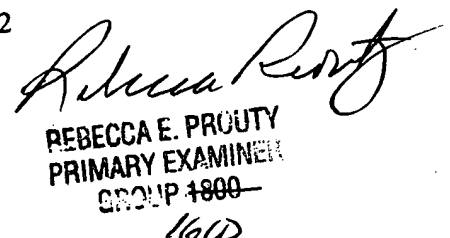 2
Rebecca Prouty
REBECCA E. PROUTY
PRIMARY EXAMINER
GROUP 1800
1600